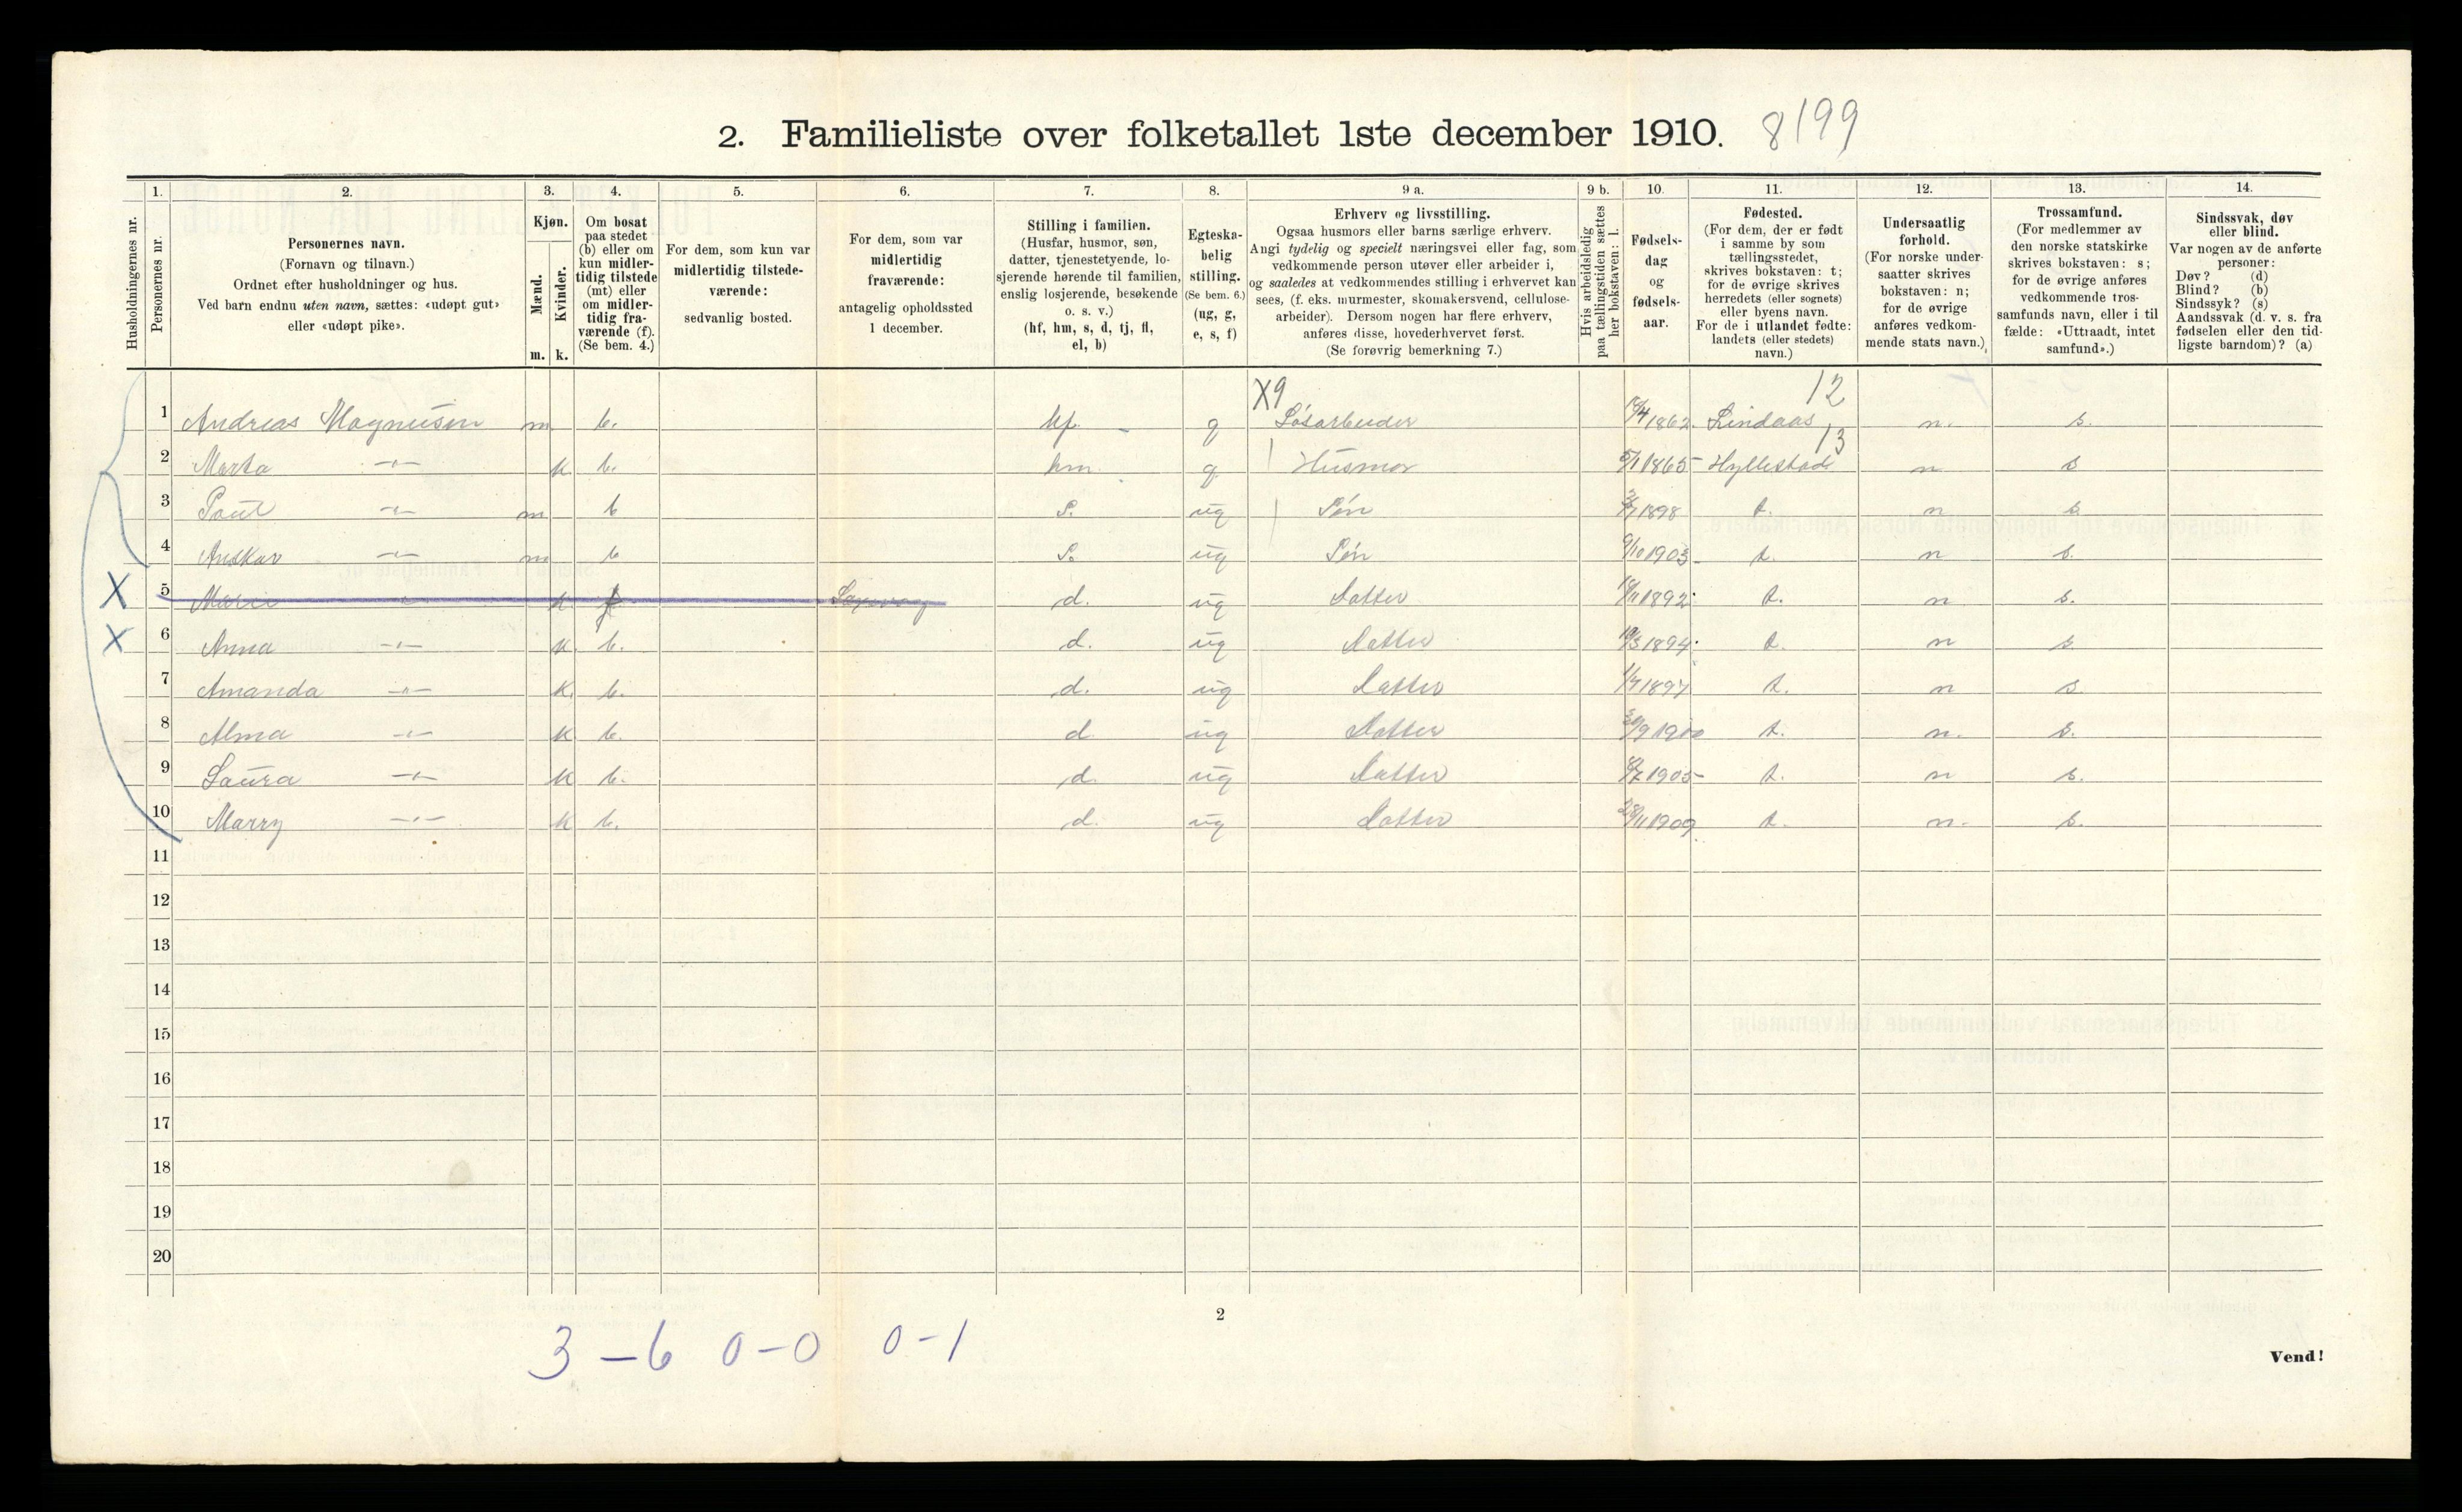 2. Familieliste over folketallet 1ste december 1910. 8199
1. 2. 3. 4. 5. 6. 7. 8. 9 a. 9 b. 10. 11. 12. 13. 14.
Husholdningernes nr.
Personernes nr.
Personernes navn.
(Fornavn og tilnavn.)
Ordnet efter husholdninger og hus.
Ved barn endnu uten navn, sættes: «udøpt gut»
eller «udøpt pike».
Kjøn.
Mænd.
Kvinder.
m. k.
Om bosat
paa stedet
(b) eller om
kun midler-
tidig tilstede
(mt) eller
om midler-
tidig fra-
værende (f).
(Se bem. 4.)
For dem, som kun var
midlertidig tilstede-
værende:
sedvanlig bosted.
For dem, som var
midlertidig
fraværende:
antagelig opholdssted
1 december.
Stilling i familien.
(Husfar, husmor, søn,
datter, tjenestetyende, lo-
sjerende hørende til familien,
enslig losjerende, besøkende
o. s. v.)
(hf, hm, s, d, tj, fl,
el, b)
Egteska-
belig
stilling.
(Se bem. 6.)
(ug, g,
e, s, f)
Erhverv og livsstilling.
Ogsaa husmors eller barns særlige erhverv.
Angi tydelig og specielt næringsvei eller fag, som
vedkommende person utøver eller arbeider i,
og saaledes at vedkommendes stilling i erhvervet kan
sees, (f. eks. murmester, skomakersvend, cellulose-
arbeider). Dersom nogen har flere erhverv,
anføres disse, hovederhvervet først.
(Se forøvrig bemerkning 7.)
Hvis arbeidsledig
paa tællingstiden sættes
her bokstaven: l.
Fødsels-
dag
og
fødsels-
aar.
Fødested.
(For dem, der er født
i samme by som
tællingsstedet,
skrives bokstaven: t;
for de øvrige skrives
herredets (eller sognets)
eller byens navn.
For de i utlandet fødte:
landets (eller stedets)
navn.)
Undersaatlig
forhold.
(For norske under-
saatter skrives
bokstaven: n;
for de øvrige
anføres vedkom-
mende stats navn.)
Trossamfund.
(For medlemmer av
den norske statskirke
skrives bokstaven: s;
for de øvrige anføres
vedkommende tros-
samfunds navn, eller i til
fælde: «Uttraadt, intet
samfund».)
Sindssvak, døv
eller blind.
Var nogen av de anførte
personer:
Døv? (d)
Blind? (b)
Sindssyk? (s)
Aandssvak (d. v. s. fra
fødselen eller den tid-
ligste barndom)? (a)
X9 12
1 Andreas Magnusen m b. hf. g Løsarbeider 1862 Lindaas n. s.
13
2 Marta -"- k b. hm. g. Husmor 5/1 1865 Hyllestad n s
3 Paul -"- m b S. ug Søn 1898 t. n s
4 Anskar -"- m b S. ug Søn 9/10 1903 t. n s.
X 5 Marie -"- k f d. ug Datter 18/11 1892 t. n s.
X 6 Anna -"- k b. d. ug Datter 19/3 1894 t. n s.
7 Amanda -"- k. b. d. ug Datter 1/7 1897 t. n s.
8 Alma -"- k b. d ug Datter 30/9 1900 t. n. s.
9 Laura -"- k b. d. ug Datter 1905 t. n s.
10 Marry -"- k b. d. ug Datter 28/11 1909 t. n. s.
11
12
13
14
15
16
17
18
19
20
2
3-6 0-0 0-1
Vend!